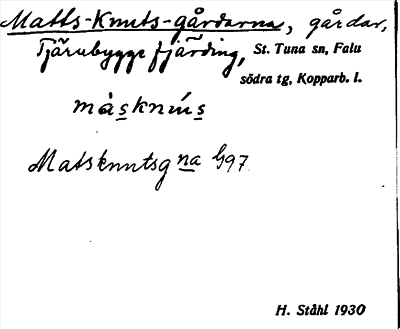 Matts-Knuts-gårdarna, gårdar,
Tjärubygge fjärding, St. Tuna sn, Falu
södra tg, Kopparb. l.
màsknús
Matsknutsg na G97
H. Ståhl 1930